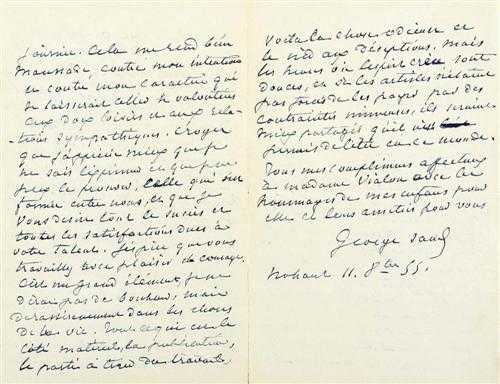 journée. Cela me rend bien
maussade, contre mon intention
et contre mon caractère qui
se laisserait aller si volontiers
aux doux loisirs et aux rela-
tions sympathiques. Croyez
que j'apprécie mieux que je
ne sais l'exprimer et que je ne
peux le prouver, celle qui s'est
formée entre nous, et que je
vous désire tout le succès et
toutes les satisfactions dues à
votre talent. J'espère que vous
travaillez avec plaisir et courage,
C'est un grand élément, je ne
dirai pas de bonheur, mais
de rassérénement dans les choses
de la vie. Tout ce qui est le
côté matériel, la publication,
le parti à tirer du travail,
Voilà la chose odieuse et
le nid aux déceptions. mais
les heures où l'esprit crée sont
douces, et si les artistes n'étaient
pas forcés de les payer par des
contraintes immenses, ils seraient
mieux partagés qu'il
permis de l'être en ce monde.
Tous mes compliments affectueux
à madame Vialon avec les
hommages de mes enfants pour
elle et leurs amitiés pour vous
George Sand
Nohant 11. 8bre 55.